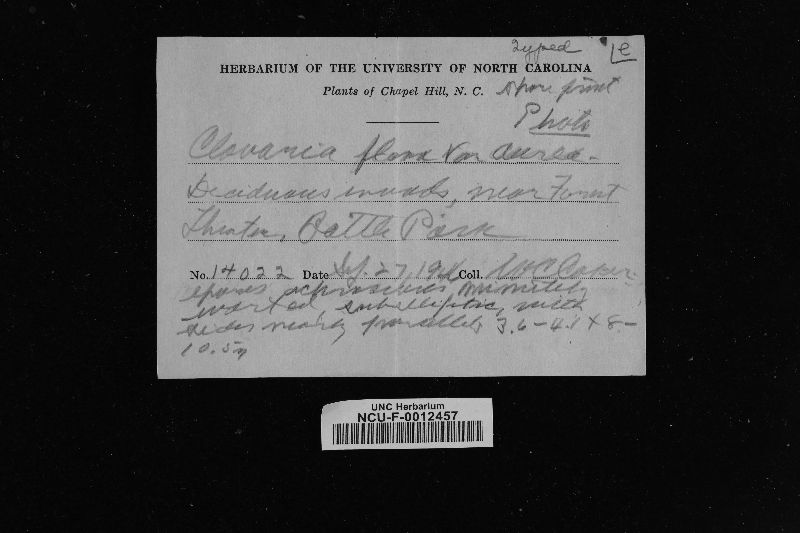 Typed
Le
HERBARIUM OF THE UNIVERSITY OF NORTH CAROLINA
Plants of Chapel Hill, N. C.
spore print
Photo
Clavaria flava var aurea.
Deciduous woods, near Forest
Theater, Battle Park
No. 14022 Date Sep. 27, Coll.
spores ochraceous minutely
warted, subelliptic, with
sides nearly parallel, 3.6-4.1 x 8.-
10.5µ
UNC Herbarium
NCU-F-0012457